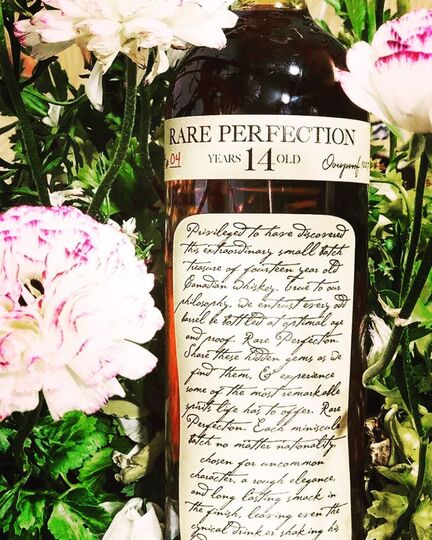 RARE PERFECTION
04
YEARS 14 OLD
Overproof
Privileged to have discovered
this extraordinary small batch
treasure of fourteen year old
Canadian whiskey. True to our
philosophy, we entrust every odd
barrel be bottled at optimal age
and proof. Rare Perfection.
Share these hidden gems as we
find them, & experience
some of the most remarkable
spirits life has to offer. Rare
Perfection. Each miniscule
batch no matter nationality
chosen for uncommon
character, a rough elegance,
and long lasting smack in
the finish, leaving even the
cynical drinker shaking his